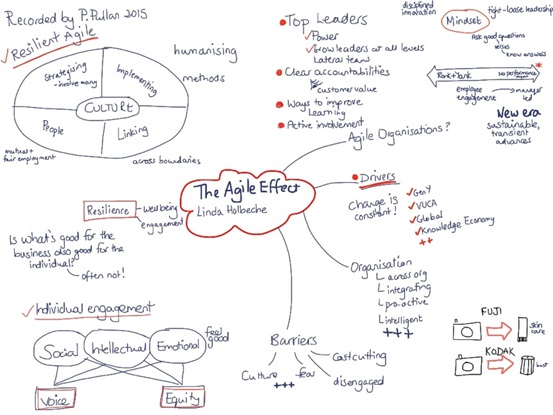 Recorded by P. Pullan 2015
Resilient Agile
humanising
methods
Strategising
- involve many
Implementing
CULTURE
People
Linking
mutual +
fair employment
across boundaries
Top Leaders
Power
Grow leaders at all levels
Lateral team
Clear accountabilities
customer value
Ways to improve
learning
Active involvement
Agile Organisations?
disciplined
innovation
tight-loose leadership
Mindset
Ask good questions
versus
know answers
Rank + Yank
No performance
employee
engagement
manager
led
New era
sustainable,
transient
advances
The Agile Effect
Linda Holbeche
Drivers
Change is
constant!
Gen Y
VUCA
Global
Knowledge Economy
++
Resilience
wellbeing
engagement
Is what's good for the
business also good for the
individual?
often not!
Organisation
across org
integrating
pro-active
intelligent
+++
Individual engagement
Social
Intellectual
Emotional
feel
good
Voice
Equity
Barriers
Culture
+++
fear
Costcutting
disengaged
FUJI
skin
care
KODAK
bust